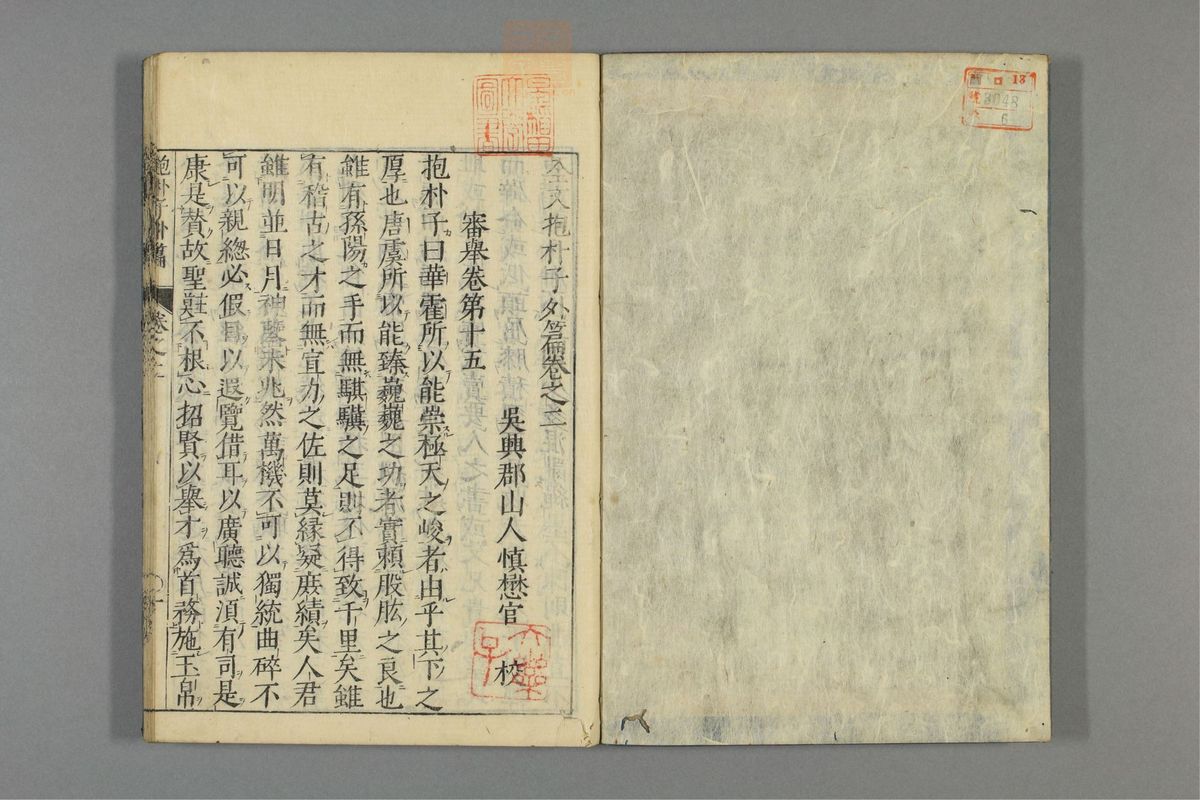 全文抱朴子外篇卷之二
吳興郡山人慎懋官校
審舉卷第十五
抱朴子曰華霍所以能崇極天之峻者由乎其下之
厚也唐虞所以能臻巍巍之功者實賴股肱之良也
雖有孫陽之手而無騏驥之足則不得致千里矣雖
有稽古之才而無宣力之佐則莫緣凝庶績矣人君
雖明並日月神鑒未兆然萬機不可以獨統曲碎不
可以親總必假目以遐覽借耳以廣聽誠湏有司是
康是贊故聖莊不根心招賢以舉才爲首務施玉帛
抱朴子外篇
卷之二
一
3048
6
13